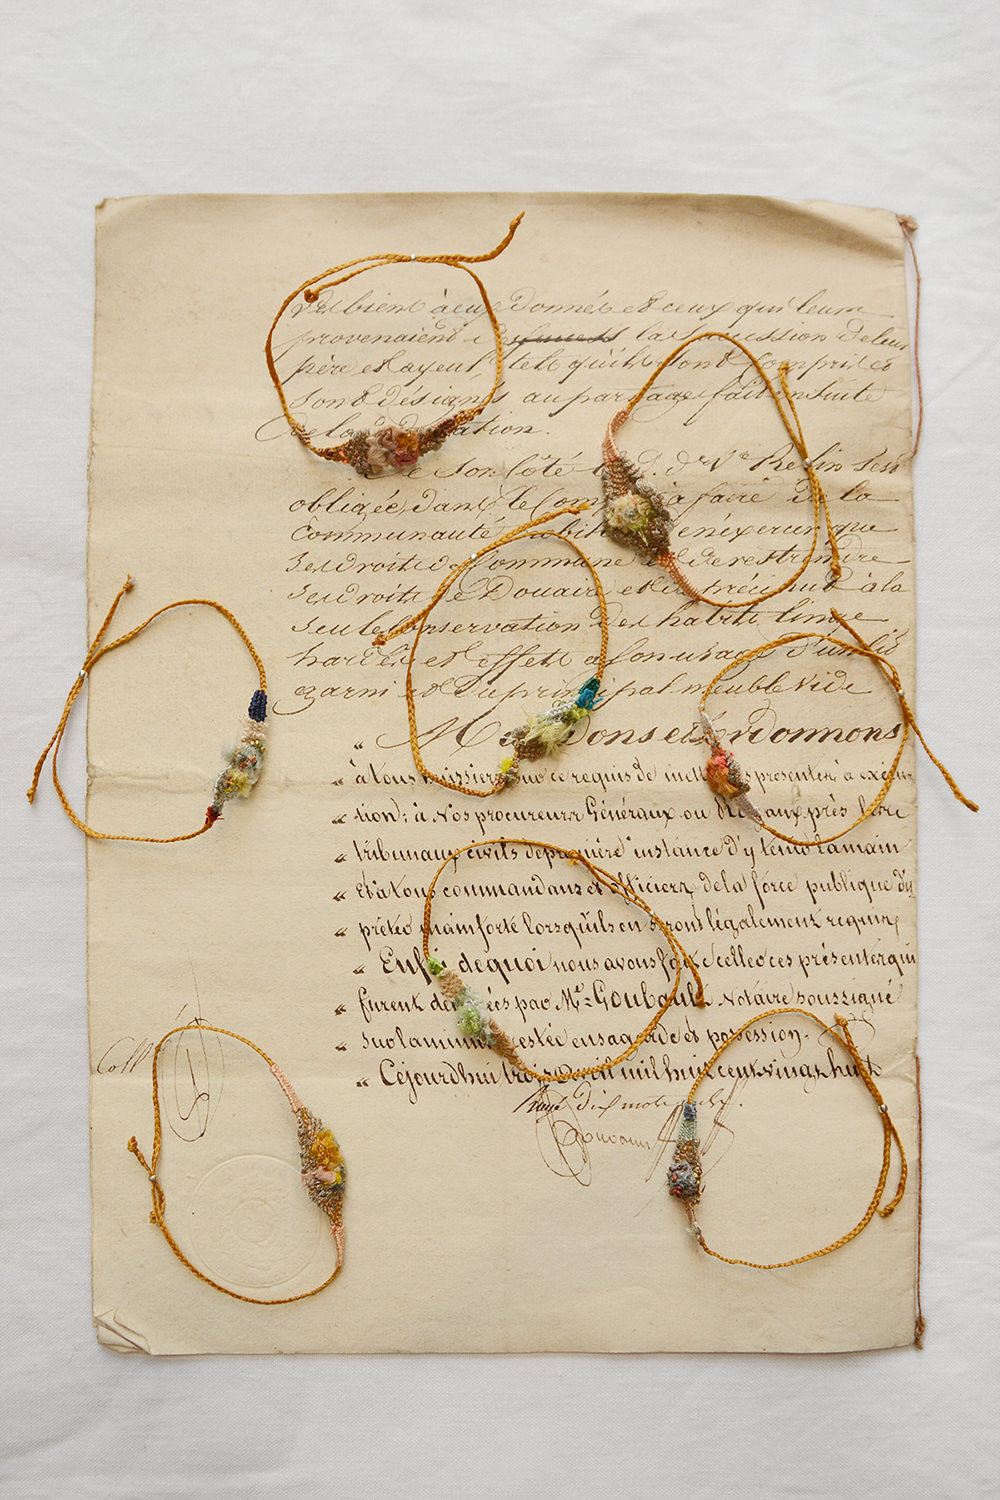 des biens à eux donnés et ceux qui leur
provenaient la succession de leur
père et ayeul, tels qu'ils sont compris et
sont désignés au partage fait ensuite
de la donation.
son côté la D. dᵉ Vᵉ
obligée, dans le à faire de la
Communauté n'exercer que
ses droits de Commune et de restreindre
ses droits de Douaire et à la
seule Conservation des habits linge
hardes et effets à son usage d'un lit
garni et du principal meuble vide
" Mandons et ordonnons
" à tous huissiers sur ce requis de mettre ces présentes à exécu
" tion; à Nos procureurs Généraux ou près les
" tribunaux civils de première instance d'y tenir la main
" et à tous commandans et officiers de la force publique d'y
" prêter mainforte lorsqu'ils en seront légalement requis,
" Enfin de quoi nous avons fait sceller ces présentes qui
" furent délivrées par Mᵉ Notaire soussigné
" sur la minute restée en sa garde et possession.
" Cejourd'hui trois avril mil huit cent vingt huit
Rayé Dix mots nuls.